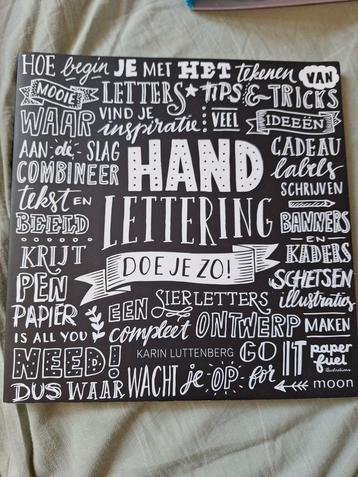 HOE begin JE MET HET tekenen VAN
MOOIE LETTERS TIPS & TRICKS
WAAR VIND JE inspiratie VEEL IDEEËN
AAN-de-SLAG CADEAU labels
COMBINEER HAND SCHRIJVEN
tekst EN LETTERING
BEELD BANNERS EN
KRIJT DOE JE ZO! KADERS
PEN SCHETSEN
PAPIER EEN SIERLETTERS illustraties
IS ALL YOU compleet ONTWERP MAKEN
NEED! KARIN LUTTENBERG GO for IT paper fuel
DUS WAAR WACHT je OP moon